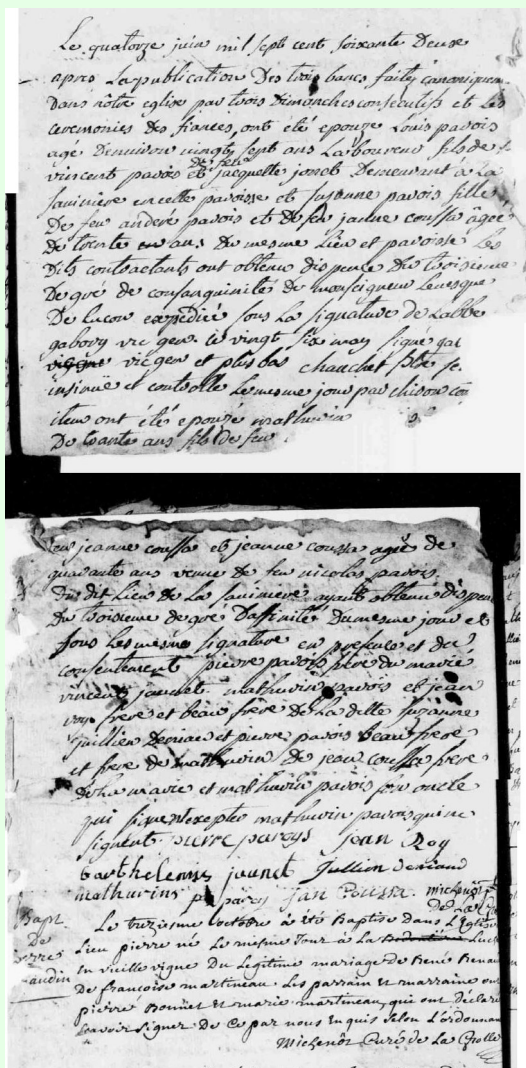 Le quatorze juin mil sept cent soixante Deux
apres La publication Des trois bancs faites canoniquem
Dans nôtre eglise par trois Dimanches consecutifs et Les
ceremonies des fiances, ont été epouze Louis pavois
agé Denviron vingt sept ans Laboureur fils de
vincent pavois et de feue jacquette jonet Demeurant a La
saniniere en cette paroisse et suzanne pavois fille
De feu andere pavois et de feu jeanne coussa agée
De trente ans Du mesme Lieu et paroisse Les
Dits contractants ont obtenu dispence Du troisieme
Degré de consanguinité De monseigneur Levesque
De Lucon expediée sous La signature De Labbe
gabory vic gen ce vingt six may signé gai
vic gen et plus bas chauchet pbte se
insinué et controllé Le mesme jour par chison con
item ont étés epouzé mathurin
De trante ans fils de feu
feu jeanne coussa et jeanne coussa agée de
quarante ans veuve de feu nicolas pavois
Du dit Lieu de La saniniere ayant obtenu Dispen
Du troisieme degré Daffinité Du mesme jour et
sous Les mesme signature en presence et du
consentement pierre pavois frere du marié
vincent jaunet mathurin pavois et jean
roy frere et beau frere de La ditte suzanne
jullien Deniau et pierre pavois beau frere
et frere de mathurin De jean coussa frere
De La mariée et mathurin pavois son oncle
qui signent excepté mathurin pavois qui ne
signent. pierre paroys jean Roy
barthelemy jaunet Jullien deniaud
mathurins parois jan Coussa. michenot
de La
Bapt. Le treziesme octobre à été Baptisé Dans L'Eglise
De Lieu pierre né Le mesme Jour à La
pierre En vieille vigne Du Legitime mariage de René Renau
naudin De francoise martineau. Les parrain et marraine on
pierre Bonnet Et marie martineau, qui ont Déclaré
scavoir signer De Ce par nous Enquis selon L'ordonnan
Michenôt Curé de La Grolle